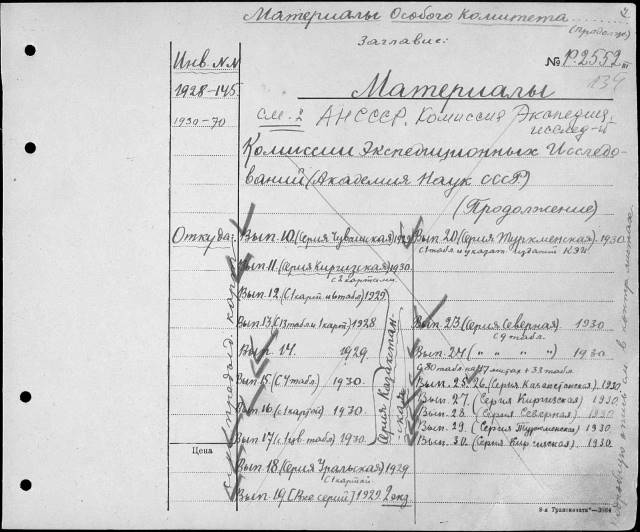 Материалы Особого Комитета
(Продолж)
Заглавие:
Инв №№
№ Р-2552 III
134
1928-145
Материалы
1930-70
см. 2 АНСССР. Комиссия Экспедиц.
исслед-й
Комиссии Экспедиционных Исследо-
ваний (Академия Наук СССР)
(Продолжение)
Откуда:
Вып. 10 (Серия Чувашская) 1929
Вып. 11 (Серия Киргизская) 1930.
с 2 картами
Вып. 12 (С 1 карт и 6 табл) 1929
Вып. 13 (С 13 табл и 1 карт.) 1928
Вып. 14. 1929.
Вып. 15 (С 7 табл) 1930.
Вып. 16 (с 1 картой) 1930.
Вып. 17 (с 1 цв. табл) 1930.
Серия Казахстан-
ская
Цена
Вып. 18 (Серия Уральская) 1929
с 1 картой
Вып. 19 (Вне серий) 1929. 2 экз
Вып. 20 (Серия Туркменская) 1930.
с 1 табл и указат. изданий КЭИ.
Вып. 23 (Серия Северная) 1930
с 9 табл.
Вып. 24 („ „ „ „) 1930.
с 80 табл на 47 листах + 33 табл
Вып. 25. 26 (Серия Казахстанская). 1930.
Вып. 27 (Серия Киргизская) 1930.
Вып. 28. (Серия Северная) 1930
Вып. 29. (Серия Туркменская) 1930.
Вып. 30. (Серия Киргизская) 1930.
см. продолж. карт